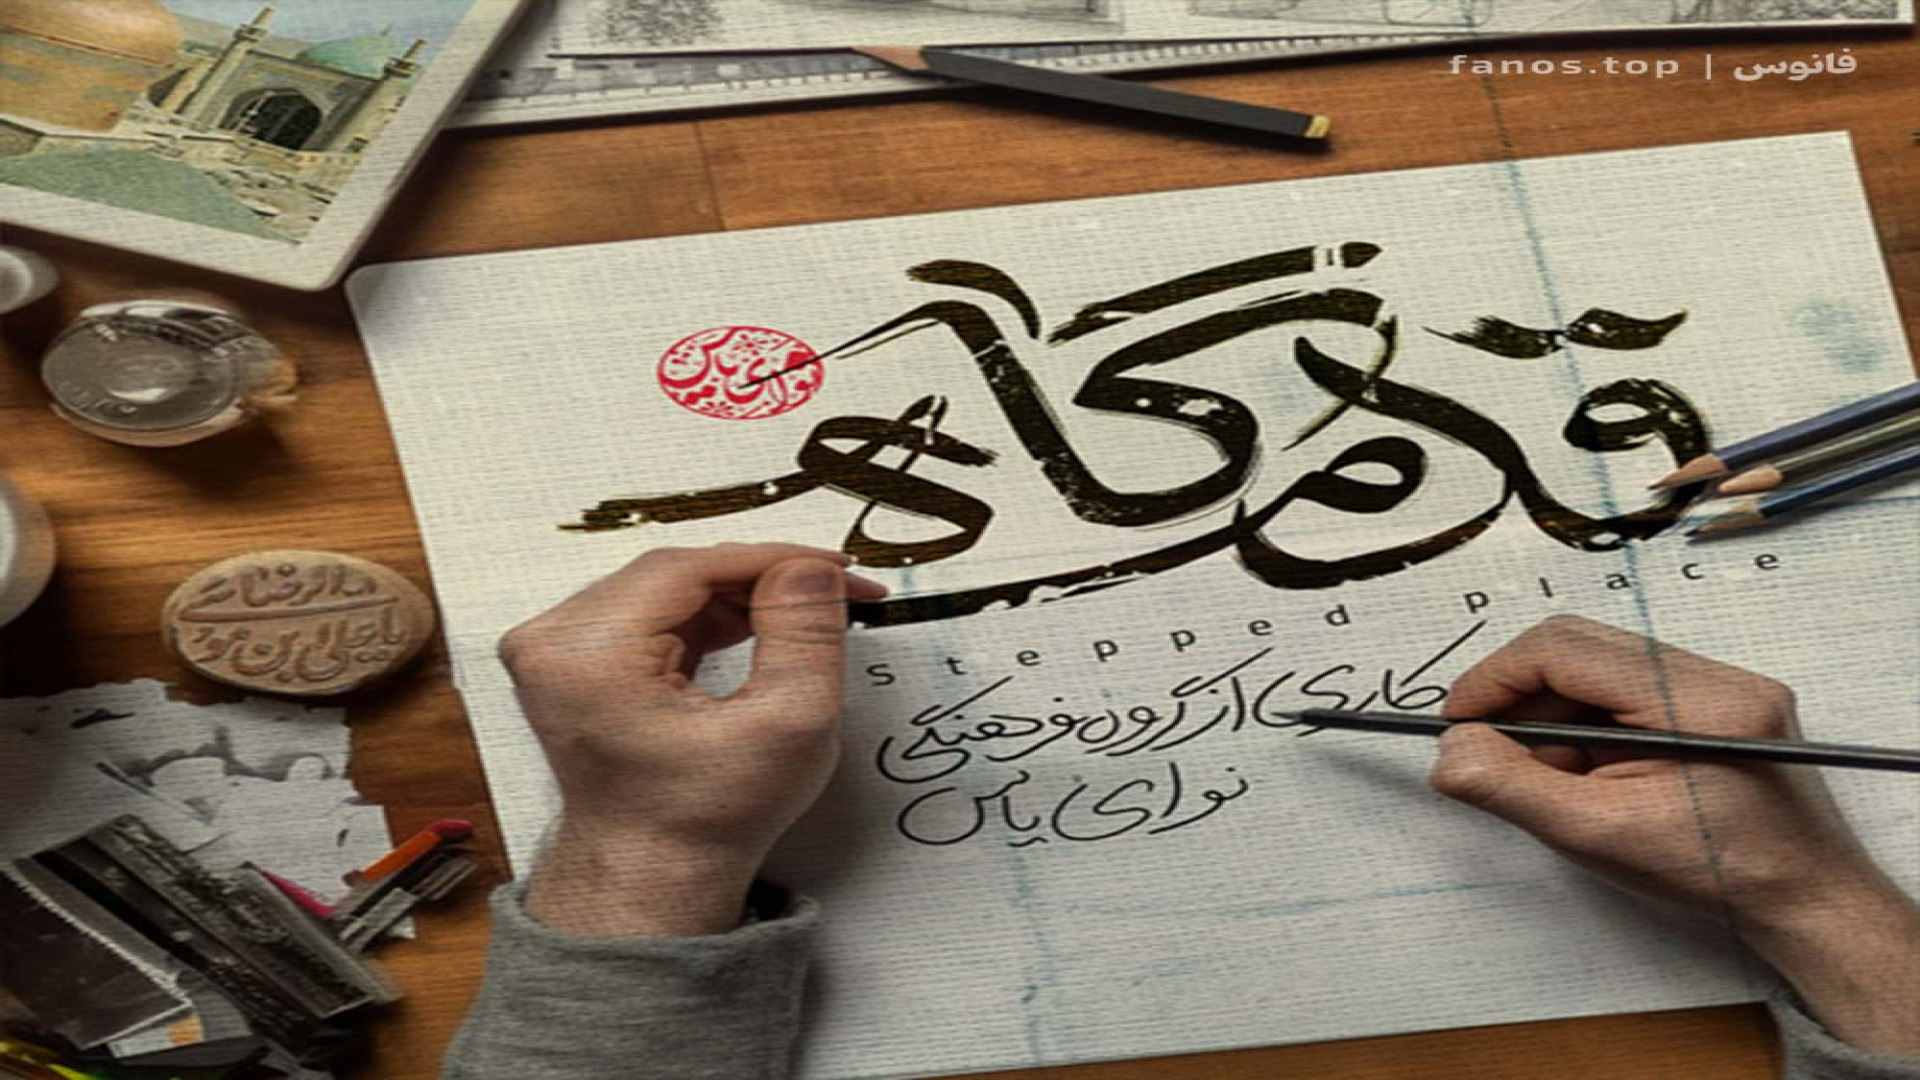 فانوس | fanos.top
قدمگاه
نوای یاس
stepped place
کاری از گروه فرهنگی
نوای یاس
یا علی بن مو